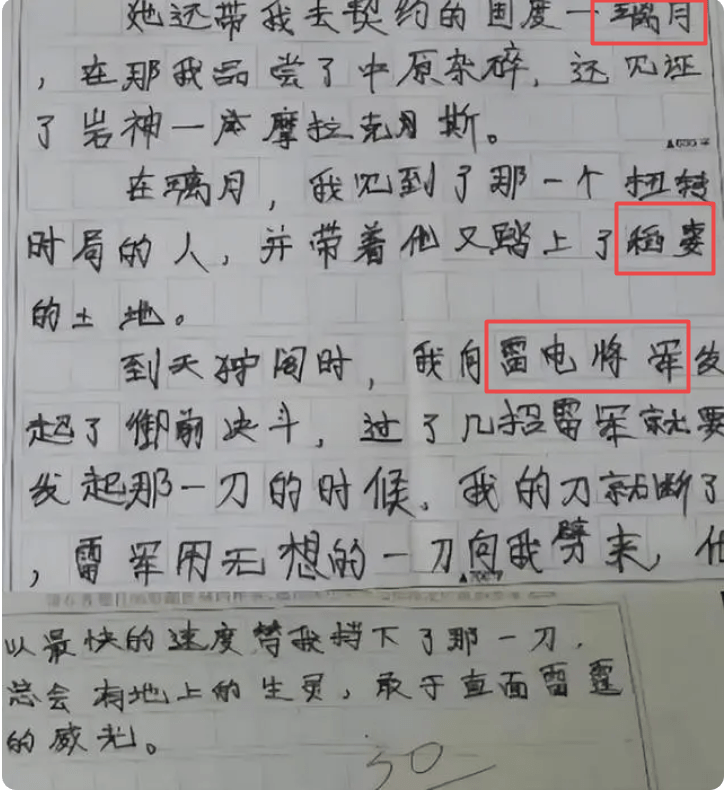 她还带我去契约的国度一璃月
，在那我品尝了中原杂碎，还见证
了岩神一库摩拉克月斯。
▲600字
在璃月，我见到了那一个扭转
时局的人，并带着他又踏上了稻妻
的土地。
到天守阁时，我向雷电将军发
起了御前决斗，过了几招雷军就要
发起那一刀的时候，我的刀就断了
，雷军用无想的一刀向我劈来，他
▲700字
以最快的速度替我挡下了那一刀，
总会有地上的生灵，敢于直面雷霆
的威光。
50